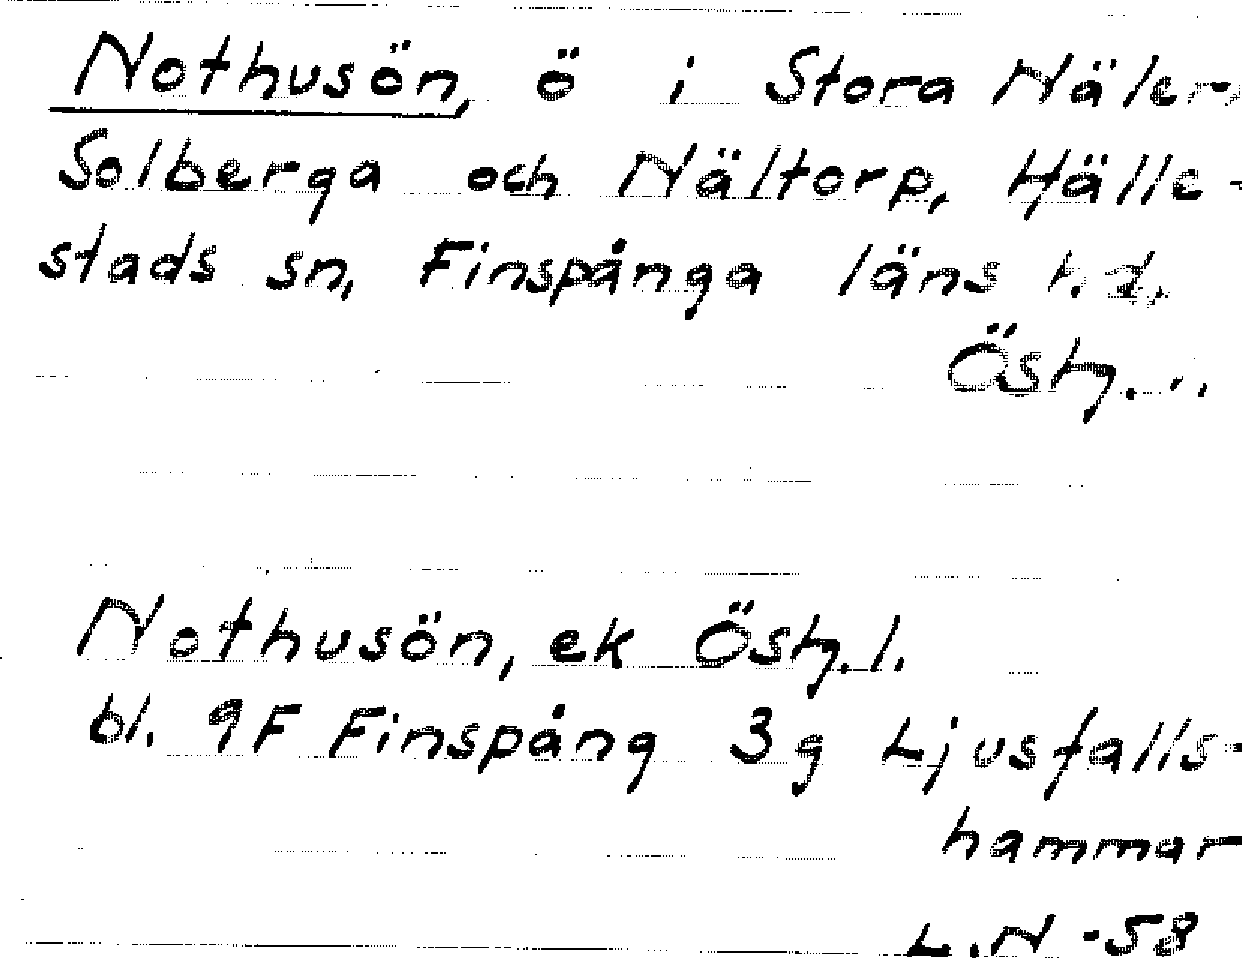 Nothusön, ö i Stora Nälern,
Solberga och Nältorp, Hälle-
stads sn, Finspånga läns h.d.
Östg.
Nothusön, ek Östg. l.
bl. 9F Finspång 3g Ljusfalls-
hammar
L.N -58